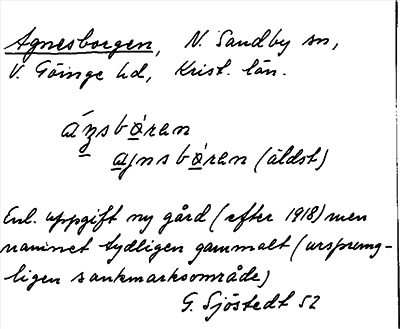 Agnesborgen, N. Sandby sn,
V. Göinge hd, Krist. län.
áŋsbo̱ran
a̱jnsbo̱ran (äldst)
Enl. uppgift ny gård (efter 1918) men
namnet tydligen gammalt (ursprung-
ligen sankmarksområde)
G. Sjöstedt 52